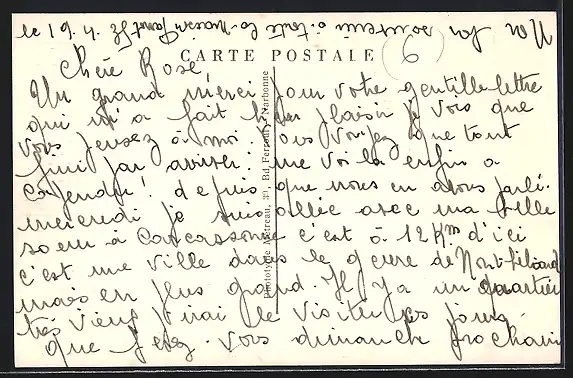 CARTE POSTALE
6
Chère Rose
Un grand merci pour votre gentille lettre
qui m'a fait plaisir Je vois que
vous pensez à moi. Vous voyez que tout
fini par arriver. me voila enfin a
! depuis que nous en avons parlé.
mercredi je suis allée avec ma belle
soeur à Carcassonne c'est à 12 Km d'ici
c'est une ville dans le genre de
mais en plus grand. Il y a un quartier
très vieux j'irai le visiter ces jours
que vous dimanche prochain
Phototypie 39, Bd. Narbonne
Mon bon souvenir à toute la maison